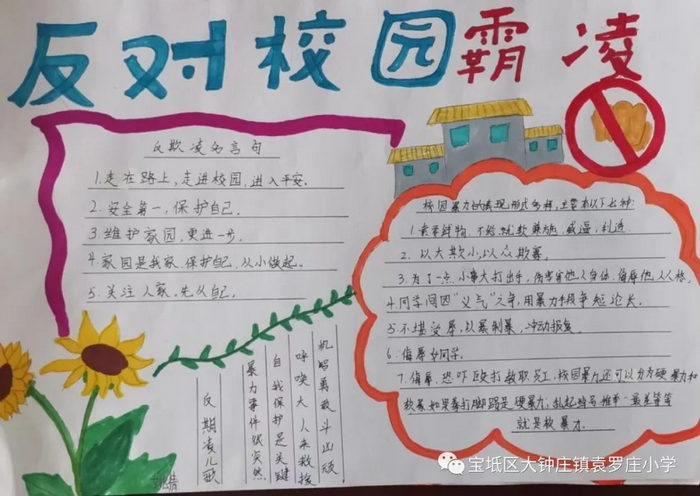 反对校园霸凌
反欺凌名言句
1.走在路上,走进校园,进入平安。
2.安全第一,保护自己。
3.维护家园,更进一步。
4.家园是我家,保护自己,从小做起。
5.关注人家,先从自己。
校园暴力的表现形式多样,主要有以下七种:
1.索要钱物,不给就软硬兼施,威逼,利诱
2.以大欺小,以众欺寡。
3.为了一点小事大打出手,伤害他人身体,侮辱他人人格。
4.同学间因“义气”之争,用暴力手段争短论长。
5.不堪受辱,以暴制暴,冲动报复。
6.侮辱女同学。
7.侮辱、恐吓、殴打教职员工,校园暴力还可以分为硬暴力和
软暴
就是软暴力。
反期凌儿歌
暴力事件似突然
自我保护是关键
呼唤大人来救援
机智勇敢斗凶顽
宝坻区大钟庄镇袁罗庄小学